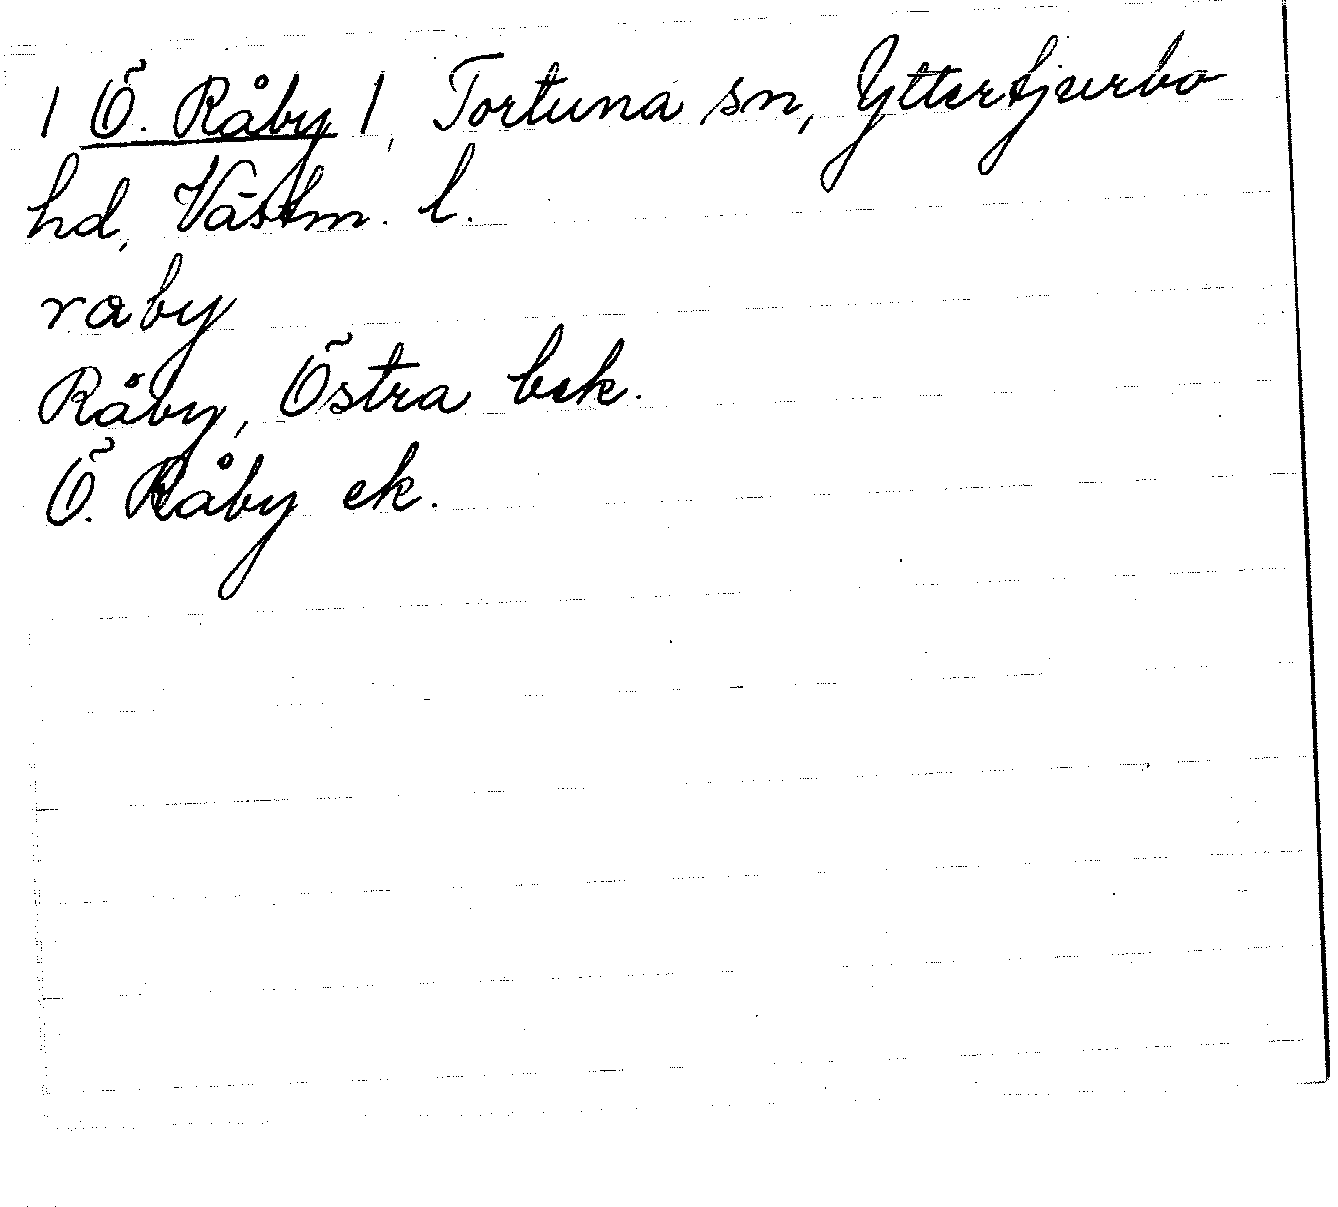 / Ö. Råby /, Tortuna sn, Yttertjurbo
hd, Västm. l.
raby
Råby, Östra bsk.
Ö. Råby ek.